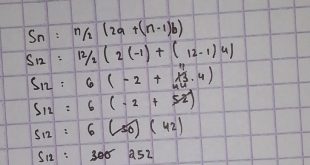 Sn : n/2 (2a + (n-1)b)
S12 : 12/2 (2(-1) + (12-1)4)
S12 : 6 (-2 + 11 . 4)
S12 : 6 (-2 + 44 52)
S12 : 6 (50) (42)
S12 : 300 252